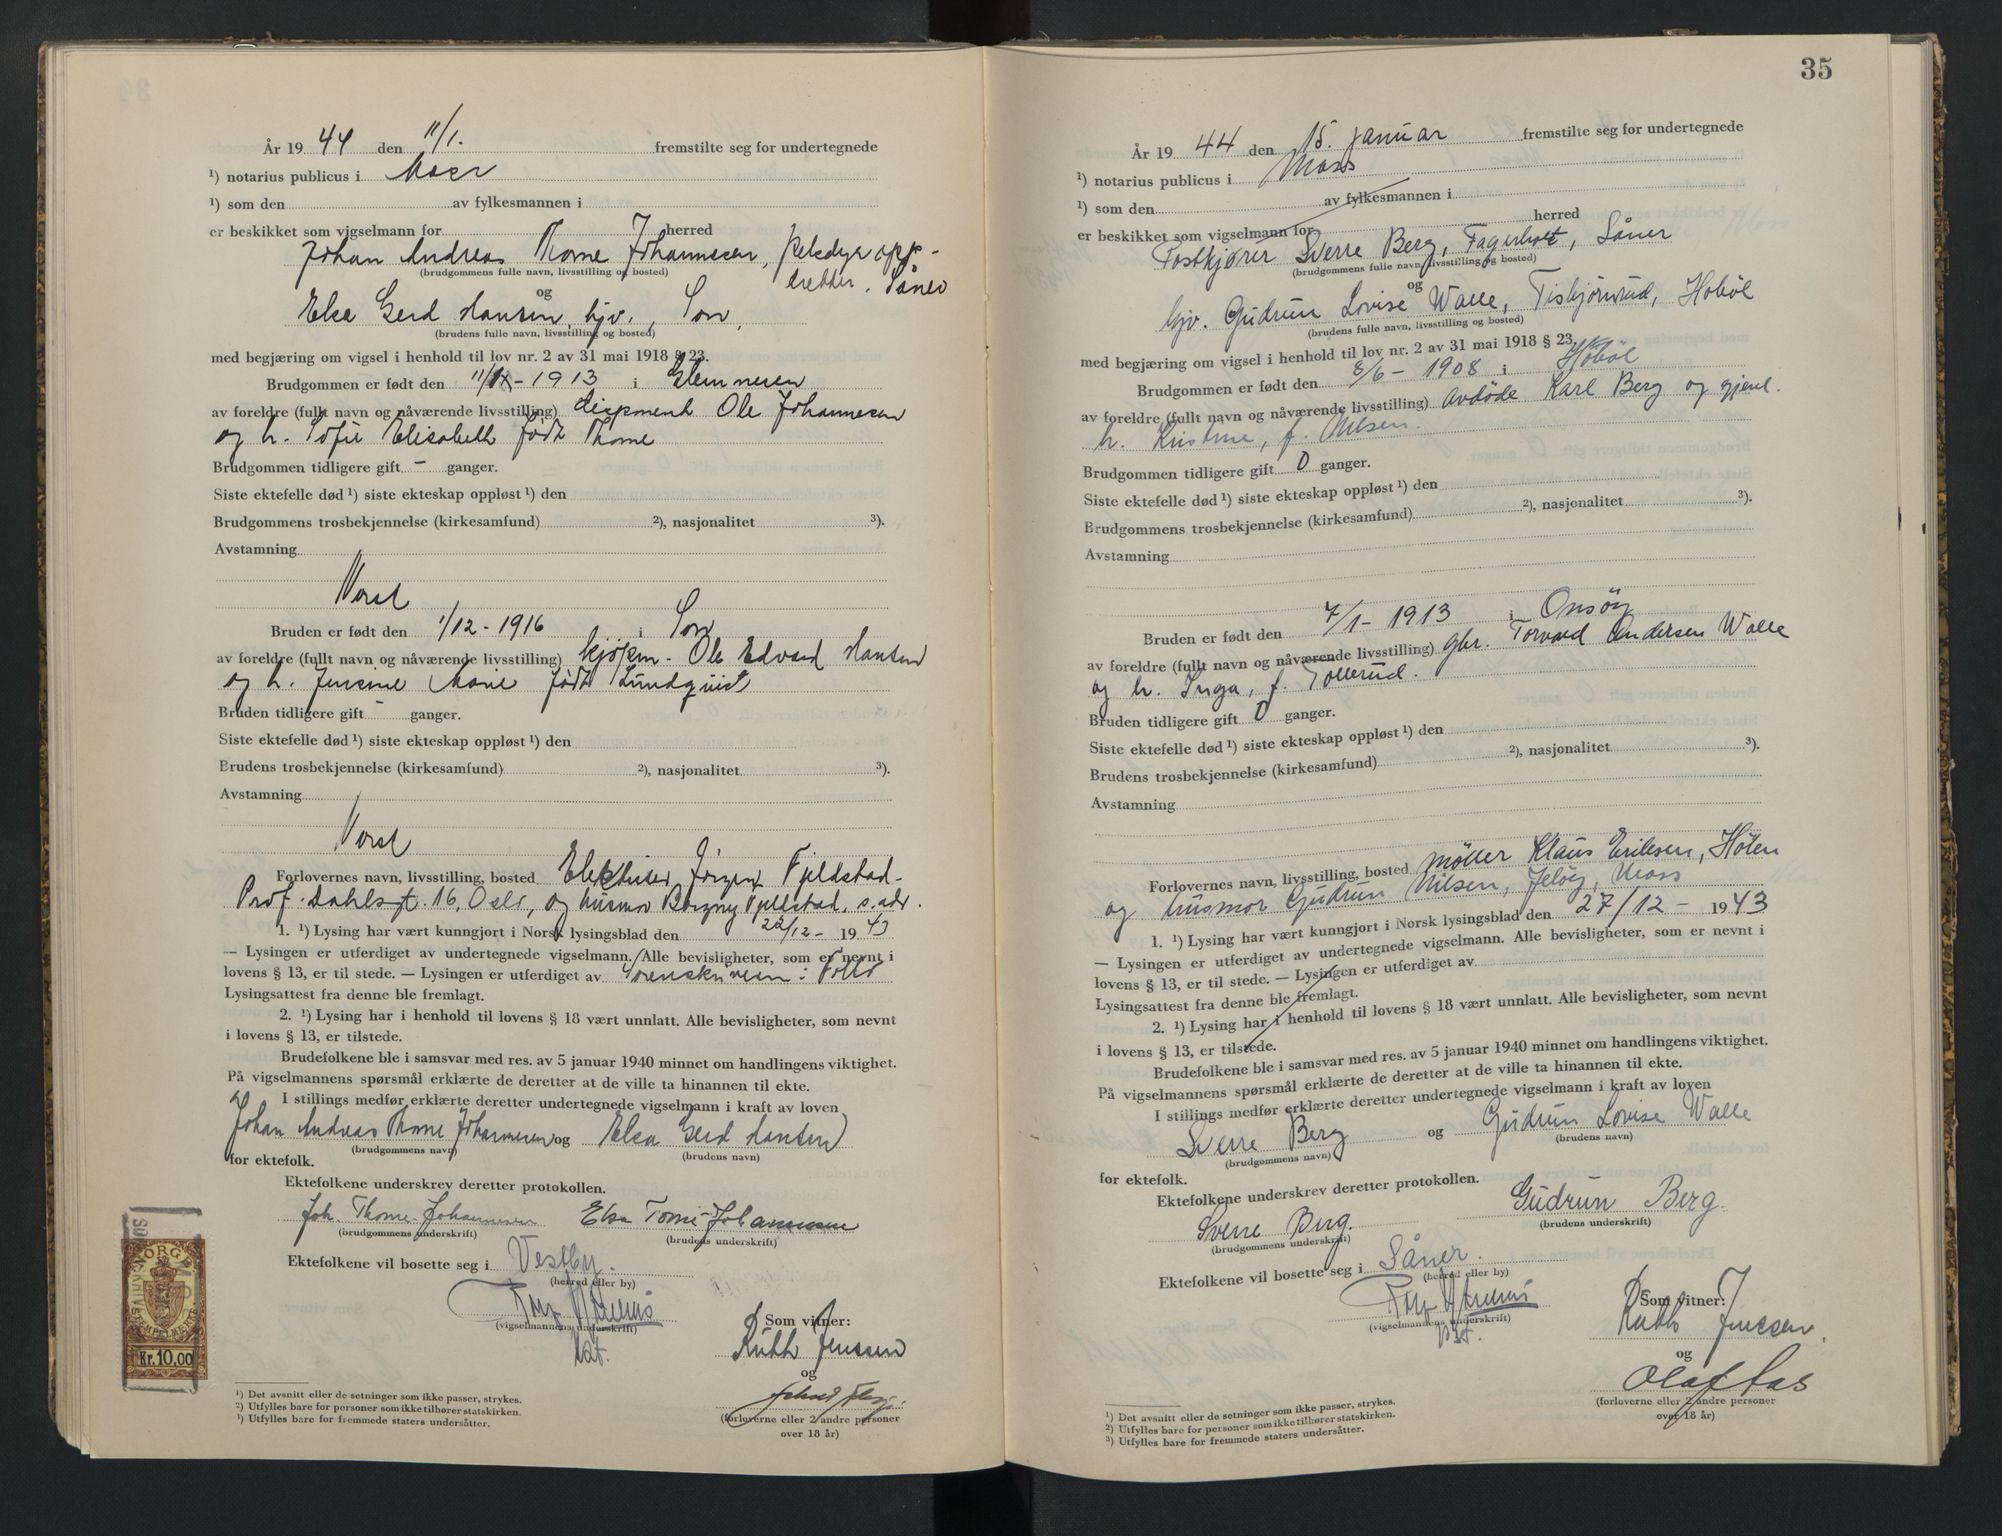 År 1944 den 11/1. fremstilte seg for undertegnede
¹) notarius publicus i Moss
¹) som den av fylkesmannen i
er beskikket som vigselmann for herred
Johan Andreas Thome Johannesen, pelsdyropp-
(brudgommens fulle navn, livsstilling og bosted)
dretter. Såner
og
Elsa Gerd Hansen, hjv., Son,
(brudens fulle navn, livsstilling og bosted)
med begjæring om vigsel i henhold til lov nr. 2 av 31 mai 1918 § 23.
Brudgommen er født den 11/ - 1913 i Glemmen
av foreldre (fullt navn og nåværende livsstilling) disponent Ole Johannesen
og h. Sofie Elisabeth født Thome
Brudgommen tidligere gift - ganger.
Siste ektefelle død ¹) siste ekteskap oppløst ¹) den
Brudgommens trosbekjennelse (kirkesamfund) ²), nasjonalitet ³).
Avstamning
Norsk
Bruden er født den 1/12 - 1916 i Son
av foreldre (fullt navn og nåværende livsstilling) kjøpm. Ole Edvard Hansen
og h. Jensine Marie født Lundquist
Bruden tidligere gift - ganger.
Siste ektefelle død ¹) siste ekteskap oppløst ¹) den
Brudens trosbekjennelse (kirkesamfund) ²), nasjonalitet ³).
Avstamning
Norsk
Forlovernes navn, livsstilling, bosted Jørgen Fjeldstad.
Prof. Dahlsgt. 16, Oslo, og husmor Borgny Fjeldstad, s. adr.
1. ¹) Lysing har vært kunngjort i Norsk lysingsblad den 22/12 - 1943
— Lysingen er utferdiget av undertegnede vigselmann. Alle bevisligheter, som er nevnt i
lovens § 13, er til stede. — Lysingen er utferdiget av Sorenskriveren i Follo
Lysingsattest fra denne ble fremlagt.
2. ¹) Lysing har i henhold til lovens § 18 vært unnlatt. Alle bevisligheter, som nevnt
i lovens § 13, er tilstede.
Brudefolkene ble i samsvar med res. av 5 januar 1940 minnet om handlingens viktighet.
På vigselmannens spørsmål erklærte de deretter at de ville ta hinannen til ekte.
I stillings medfør erklærte deretter undertegnede vigselmann i kraft av loven
Johan Andreas Thome Johannesen og Elsa Gerd Hansen
(brudgommens navn) (brudens navn)
for ektefolk.
Ektefolkene underskrev deretter protokollen.
Joh. Thome-Johannesen Elsa Tome-Johannessen
(brudgommens underskrift) (brudens underskrift)
Ektefolkene vil bosette seg i Vestby.
(herred eller by)
(vigselmannens underskrift)
Som vitner:
Ruth Jenssen
og
(forloverne eller 2 andre personer
over 18 år)
NORGE
Kr. 10.00
¹) Det avsnitt eller de setninger som ikke passer, strykes.
²) Utfylles bare for personer som ikke tilhører statskirken.
³) Utfylles bare for fremmede staters undersåtter.
35
År 1944 den 15. januar fremstilte seg for undertegnede
¹) notarius publicus i Moss
¹) som den av fylkesmannen i
er beskikket som vigselmann for herred
Postkjører Sverre Berg, Fagerholt, Såner
(brudgommens fulle navn, livsstilling og bosted)
og
hjv. Gudrun Lovise Walle, Tisbjørnrud, Hobøl
(brudens fulle navn, livsstilling og bosted)
med begjæring om vigsel i henhold til lov nr. 2 av 31 mai 1918 § 23.
Brudgommen er født den 8/6 - 1908 i Hobøl
av foreldre (fullt navn og nåværende livsstilling) avdøde Karl Berg og gjenl.
h. Kristine, f. Nilsen.
Brudgommen tidligere gift 0 ganger.
Siste ektefelle død ¹) siste ekteskap oppløst ¹) den
Brudgommens trosbekjennelse (kirkesamfund) ²), nasjonalitet ³).
Avstamning
Bruden er født den 7/1 - 1913 i Onsøy
av foreldre (fullt navn og nåværende livsstilling) gbr. Torvald Andersen Walle
og h. Inga, f. Tollerud.
Bruden tidligere gift 0 ganger.
Siste ektefelle død ¹) siste ekteskap oppløst ¹) den
Brudens trosbekjennelse (kirkesamfund) ²), nasjonalitet ³).
Avstamning
Forlovernes navn, livsstilling, bosted møller Klaus Eriksen, Hølen
og husmor Gudrun Nilsen, Jeløy, Moss
1. ¹) Lysing har vært kunngjort i Norsk lysingsblad den 27/12 - 1943
— Lysingen er utferdiget av undertegnede vigselmann. Alle bevisligheter, som er nevnt i
lovens § 13, er til stede. — Lysingen er utferdiget av
Lysingsattest fra denne ble fremlagt.
2. ¹) Lysing har i henhold til lovens § 18 vært unnlatt. Alle bevisligheter, som nevnt
i lovens § 13, er tilstede.
Brudefolkene ble i samsvar med res. av 5 januar 1940 minnet om handlingens viktighet.
På vigselmannens spørsmål erklærte de deretter at de ville ta hinannen til ekte.
I stillings medfør erklærte deretter undertegnede vigselmann i kraft av loven
Sverre Berg og Gudrun Lovise Walle
(brudgommens navn) (brudens navn)
for ektefolk.
Ektefolkene underskrev deretter protokollen.
Sverre Berg. Gudrun Berg.
(brudgommens underskrift) (brudens underskrift)
Ektefolkene vil bosette seg i Såner.
(herred eller by)
(vigselmannens underskrift)
Som vitner:
Ruth Jenssen.
og
Olaf Aas
(forloverne eller 2 andre personer
over 18 år)
¹) Det avsnitt eller de setninger som ikke passer, strykes.
²) Utfylles bare for personer som ikke tilhører statskirken.
³) Utfylles bare for fremmede staters undersåtter.